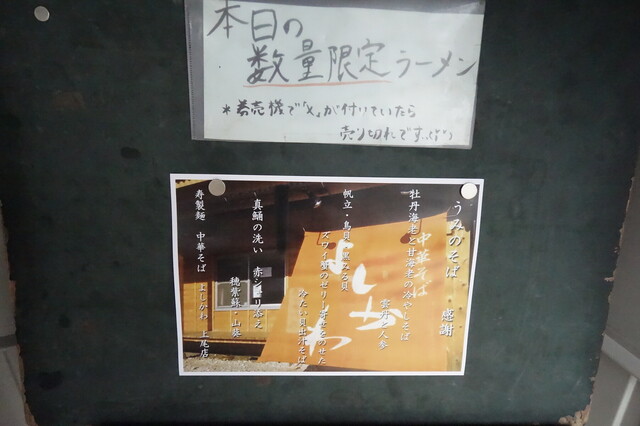 本日の
数量限定ラーメン
*券売機で「×」が付いていたら
売り切れです。
うみのそば
感謝
牡丹海老と甘海老の冷やしそば
雲丹と人参
帆立・鳥貝・黒みる貝
ズワイ蟹のゼリー寄せをのせた
冷たい貝出汁そば
真鯒の洗い 赤シャリ添え
穂紫蘇・山葵
寿製麺 中華そば よしかわ 上尾店
中華そば
よしかわ